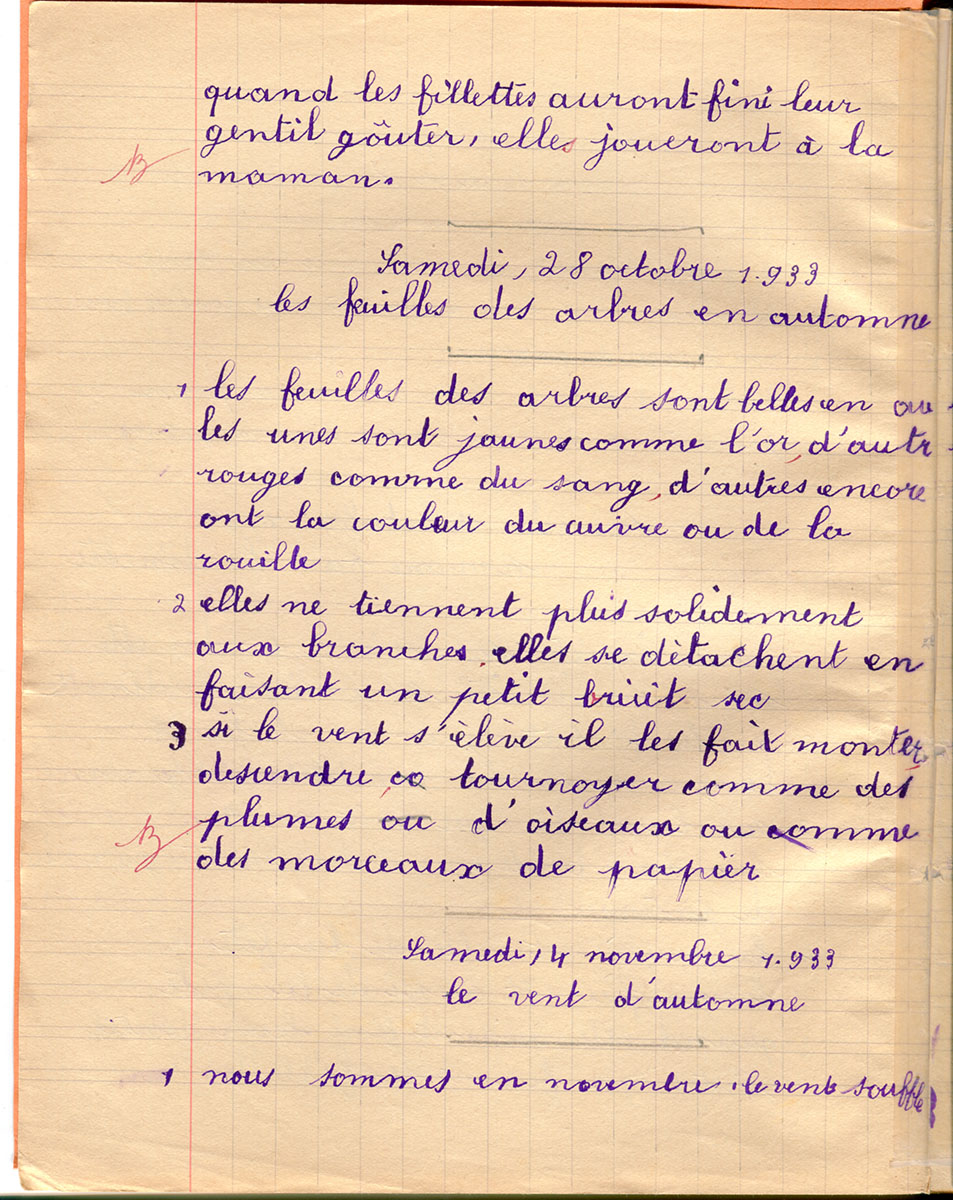 quand les fillettes auront fini leur
gentil goûter, elles joueront à la
B maman.
Samedi, 28 octobre 1.933
les feuilles des arbres en automne
1 les feuilles des arbres sont belles en au
les unes sont jaunes comme l'or, d'autr
rouges comme du sang, d'autres encore
ont la couleur du cuivre ou de la
rouille
2 elles ne tiennent plus solidement
aux branches. elles se dètachent en
faisant un petit bruit sec
3 si le vent s'élève il les fait monter,
descendre, co tournoyer comme des
B plumes ou d'oiseaux ou comme
des morceaux de papier
Samedi, 4 novembre 1.933
le vent d'automne
1 nous sommes en novembre. le vent souffle